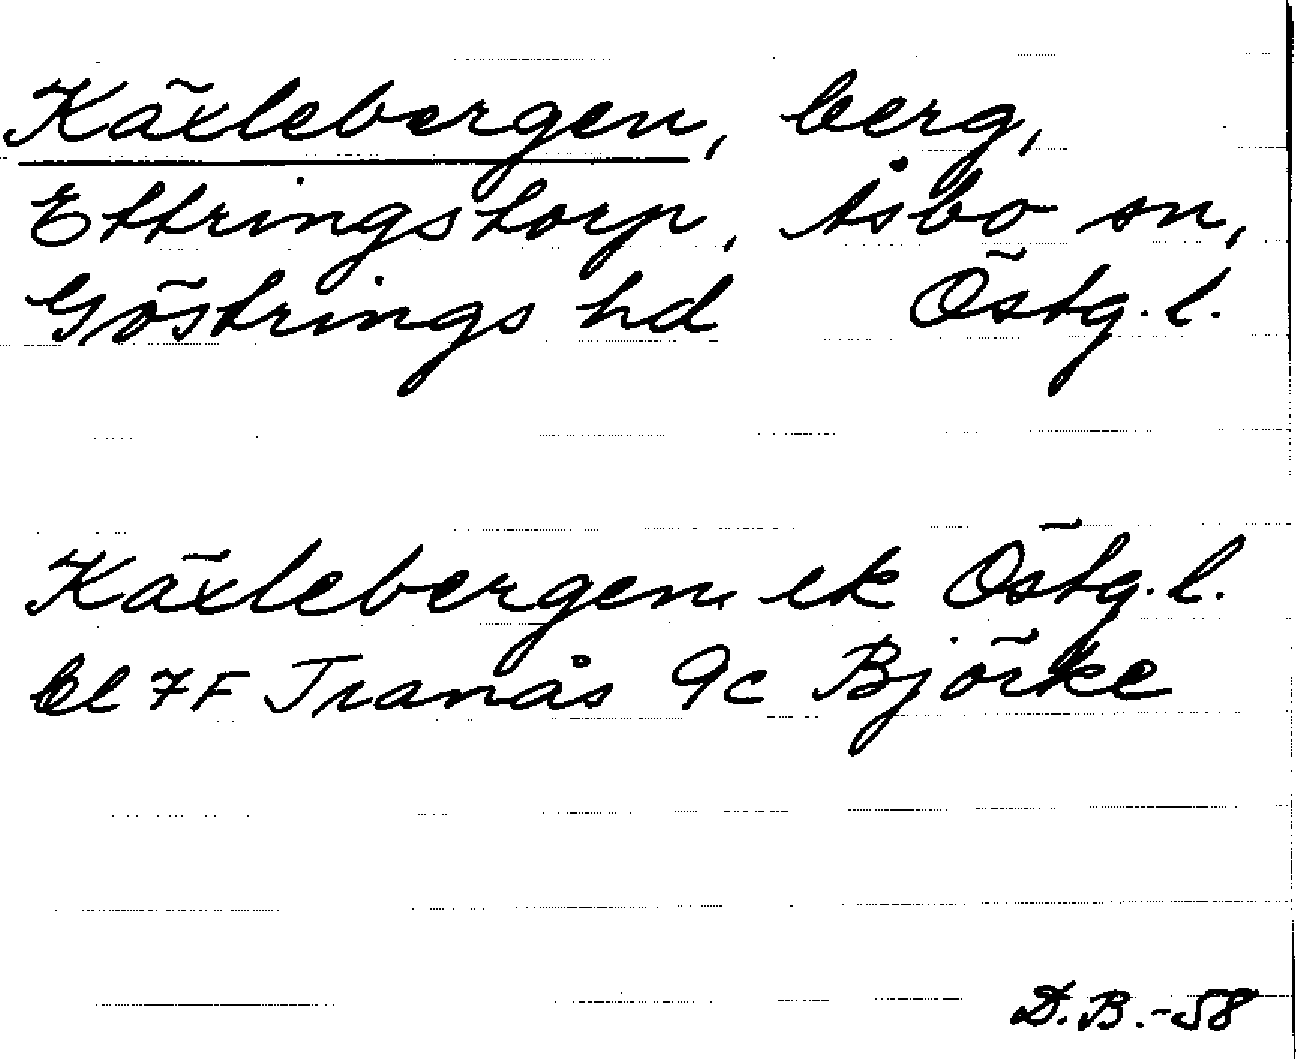 Käxlebergen, berg,
Ettringstorp, Åsbo sn,
Göstrings hd Östg. l.
Käxlebergen ek Östg. l.
bl 7F Tranås 9c Björke
D.B.-58